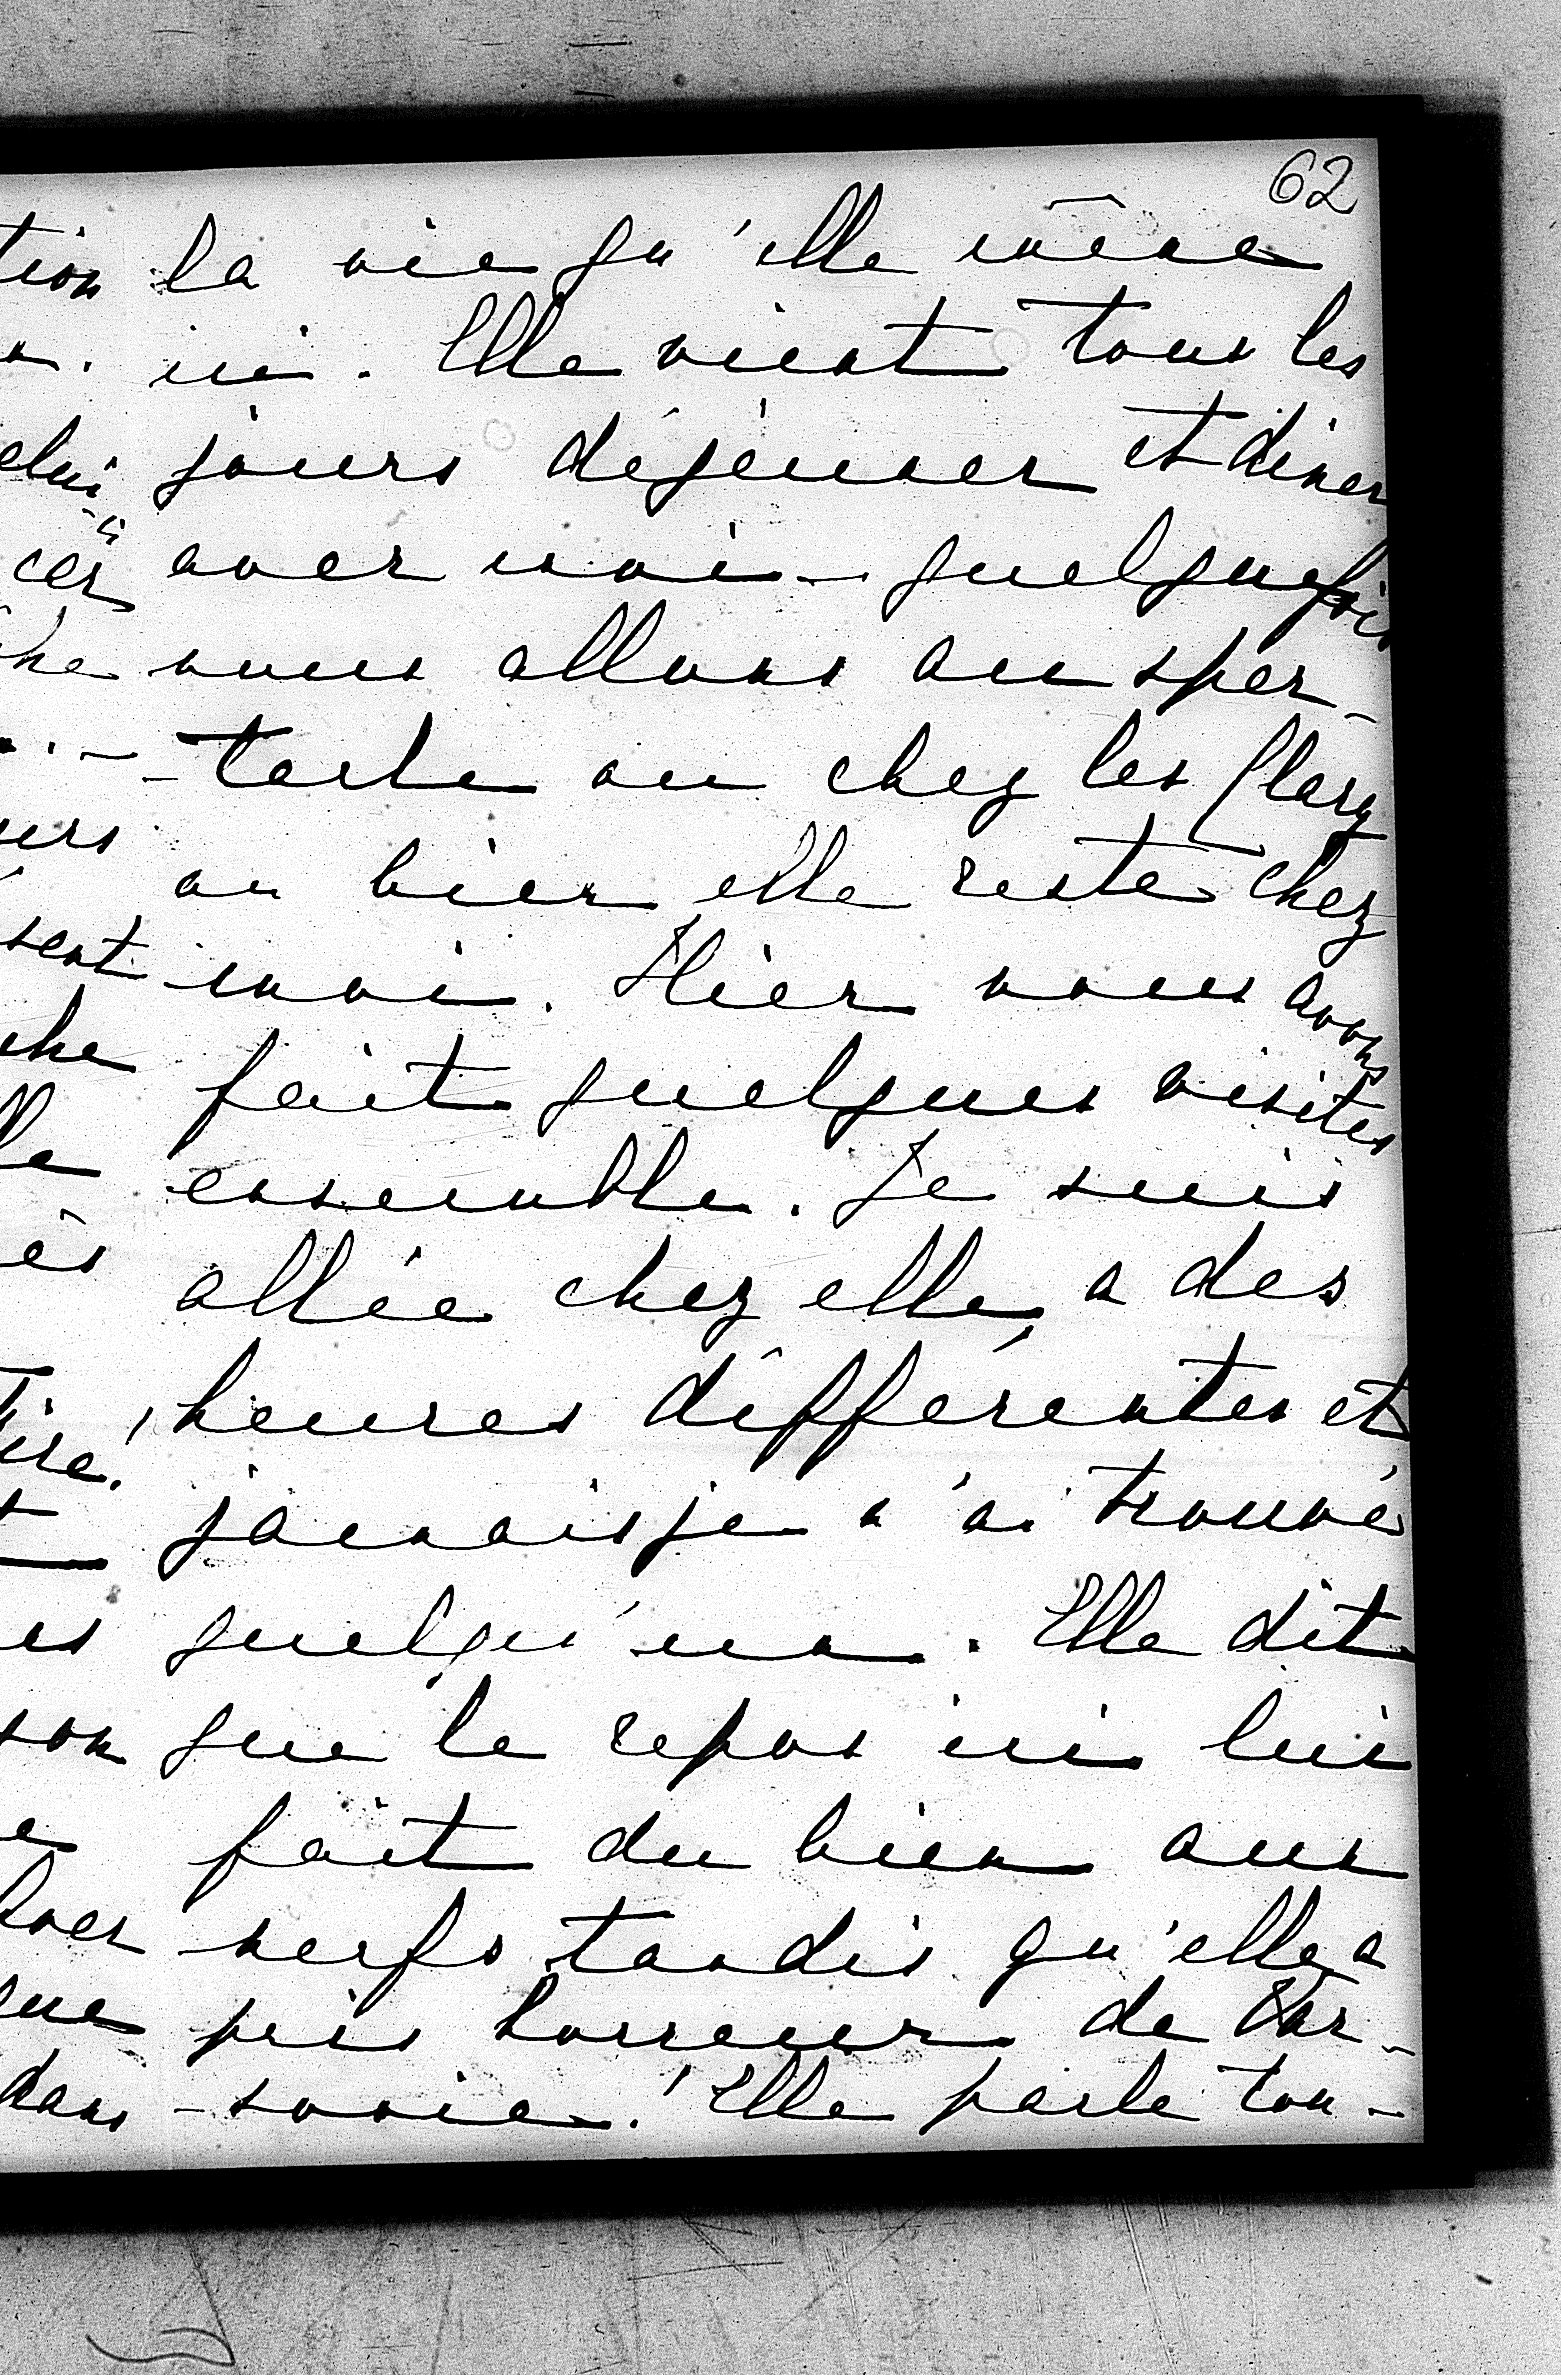 62
la vie qu'elle mène
ici. Elle vient tous les
jours déjeuner et diner
avec moi – quelquefois
nous allons au spec-
-tacle ou chez les Clary
ou bien elle reste chez
moi. Hier nous avons
fait quelques visites
ensemble. Je suis
allée chez elle, a des
heures différentes et
jamais je n'ai trouvé
quelqu'un. Elle dit
que le repos ici lui
fait du bien aux
nerfs tandis qu'elle a
pris horreur de Var-
-sovie. Elle parle tou-